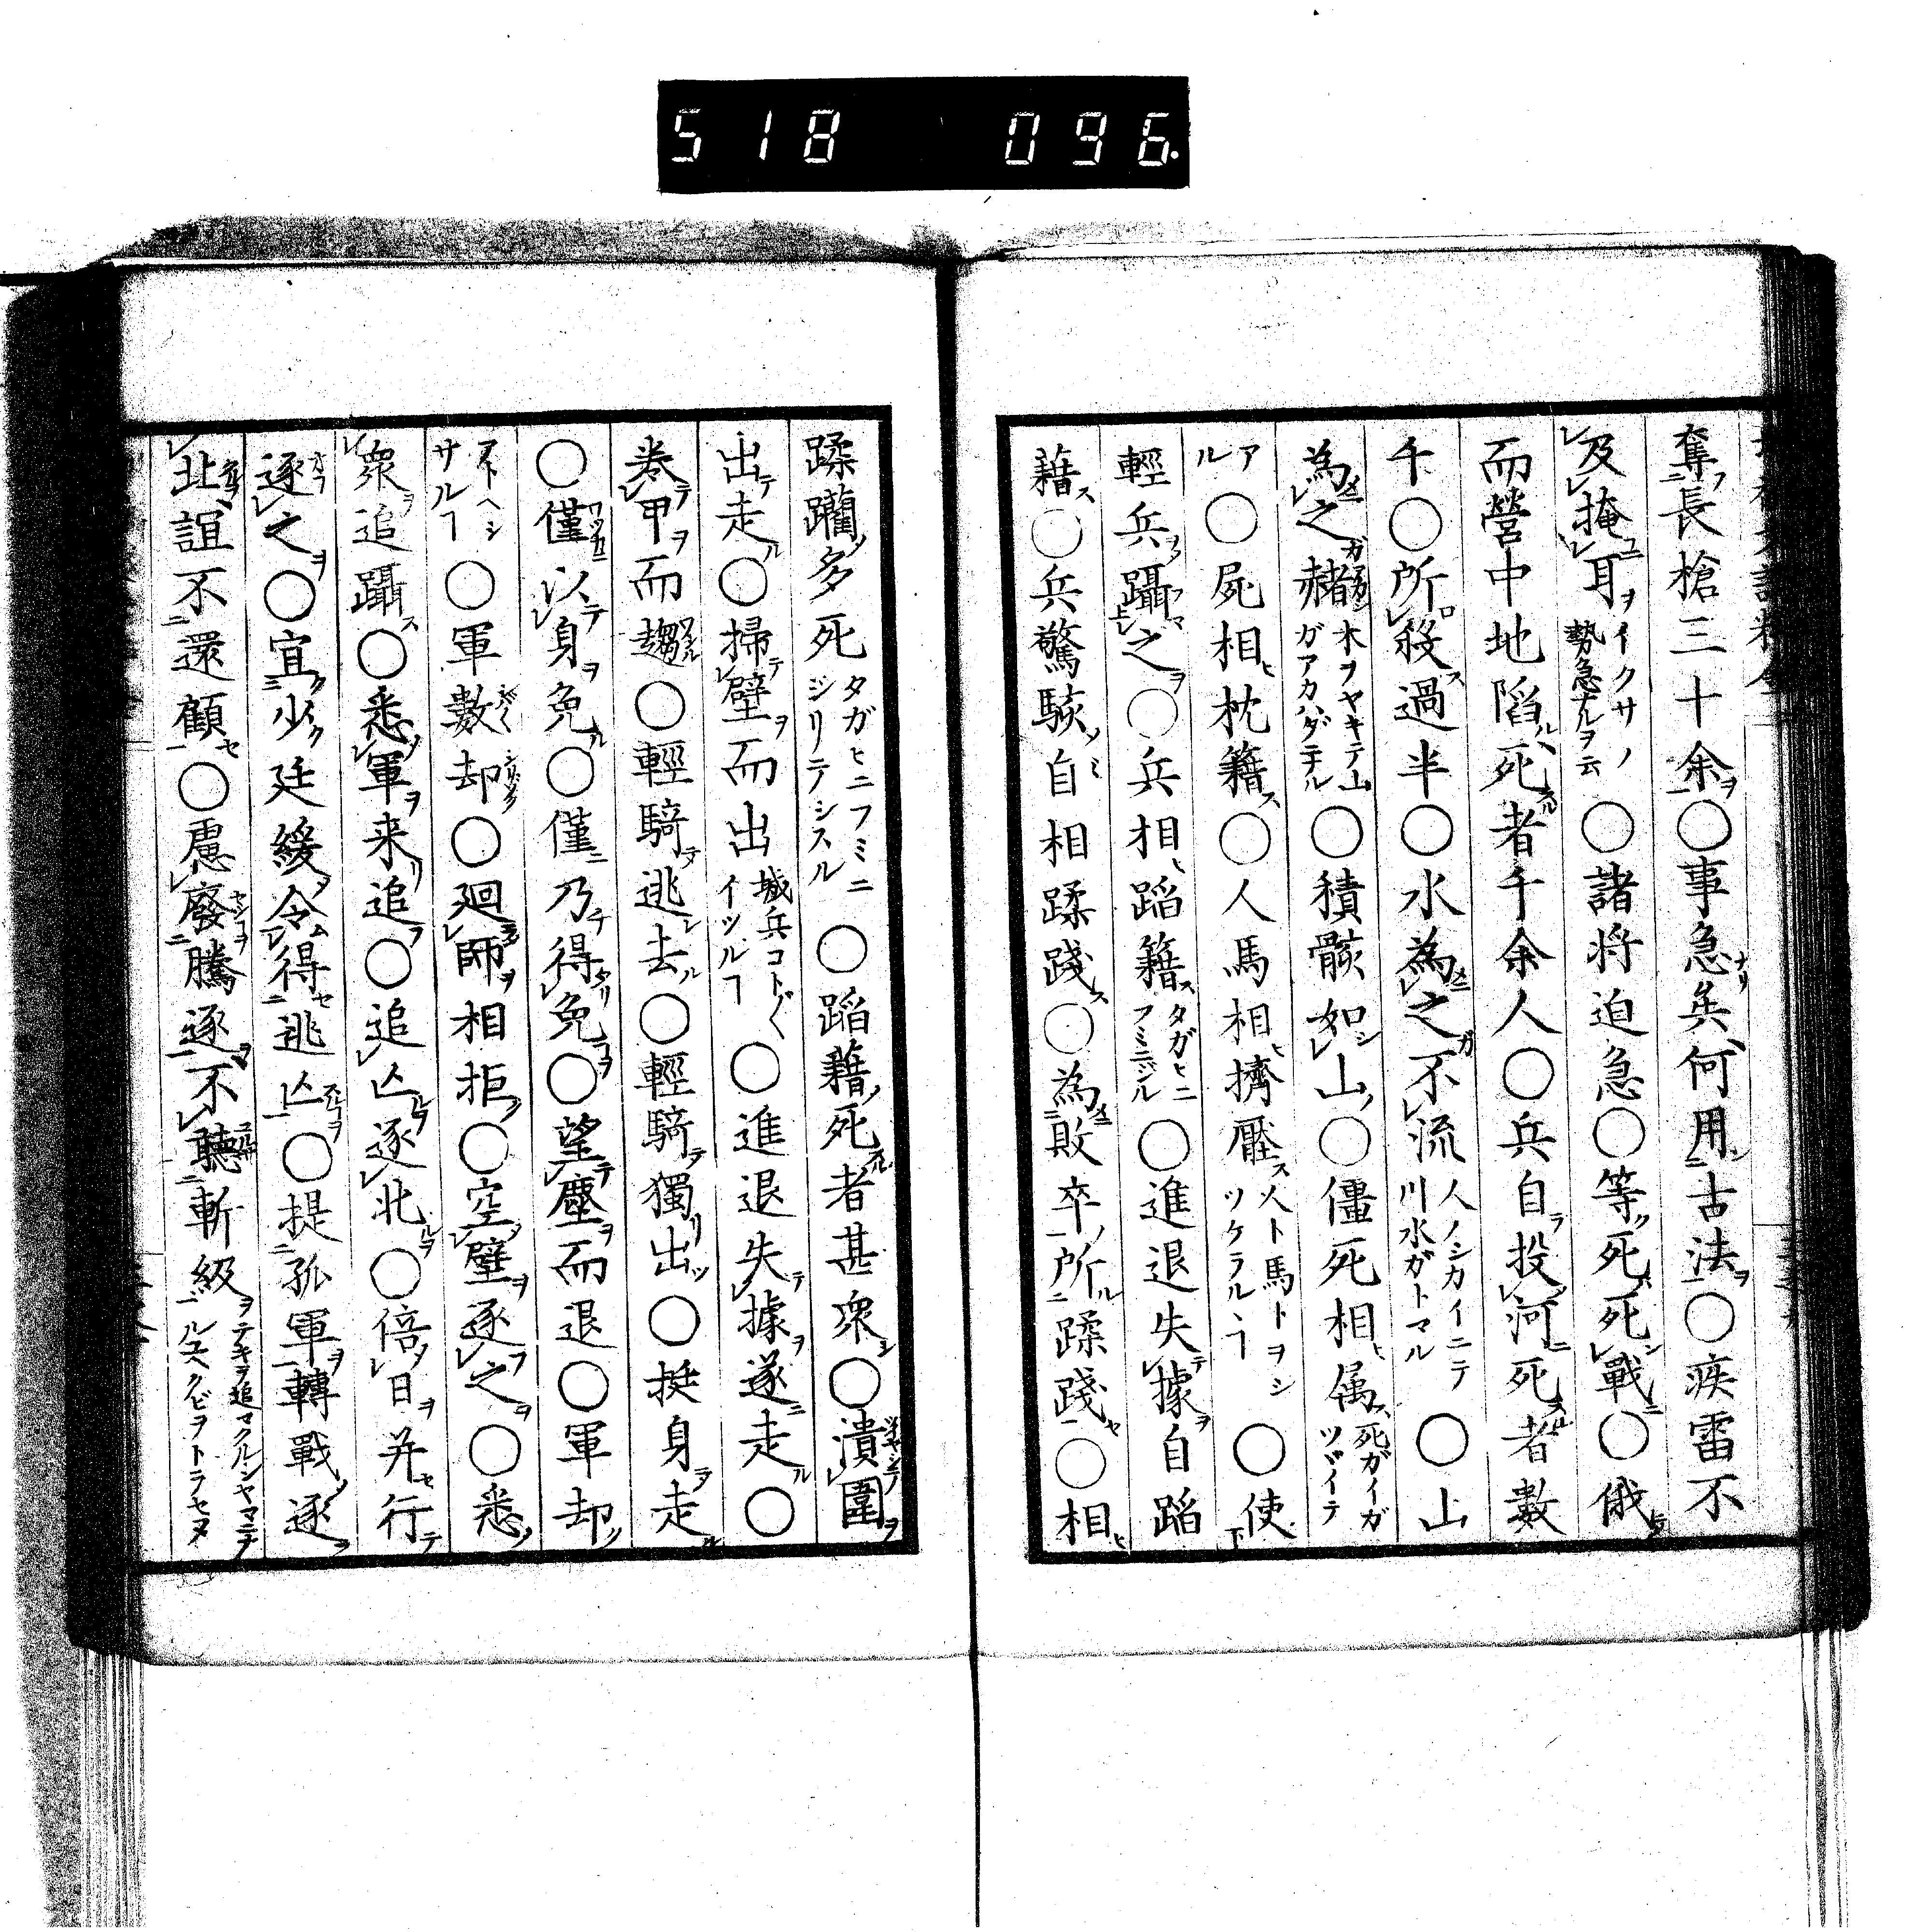 518 096.
奪長槍三十余○事急矣何用古法○疾雷不
及掩耳イクサノ勢急ナルヲ云○諸将迫急○等死死戰○俄
而營中地陷死者千余人○兵自投河死者數
千○所殺過半○水為之不流人ノシカイニテ川水ガトマル○山
為之赭木ヲヤキテ山ガアカハダニナル○積骸如山○僵死相属死ガイガツヾイテ
アル○屍相枕籍○人馬相擠壓人ト馬トヲシツケラルヽヿ○使
輕兵躡之○兵相蹈籍タガヒニフミニジル○進退失據自蹈
藉○兵驚駭自相蹂踐○為敗卒所蹂踐○相
蹂躪多死タガヒニフミニジリテシスル○蹈藉死者甚衆○潰圍
出走○掃壁而出城兵コトゴ〱イツルヿ○進退失據遂走○
卷甲而趨○輕騎逃去○輕騎獨出○挺身走
○僅以身免○僅乃得免○望塵而退○軍却
アトヘシサルヿ○軍數却○廻師相拒○空壁逐之○悉
衆追躡○悉軍来追○追亾逐北○倍日并行
逐之○宜少廷緩令得逃亾○提孤軍轉戰逐
北誼不還顧○慮廢騰逐不聽斬級テキヲ追マクルシヤマニナルユヘクビヲトラセヌ